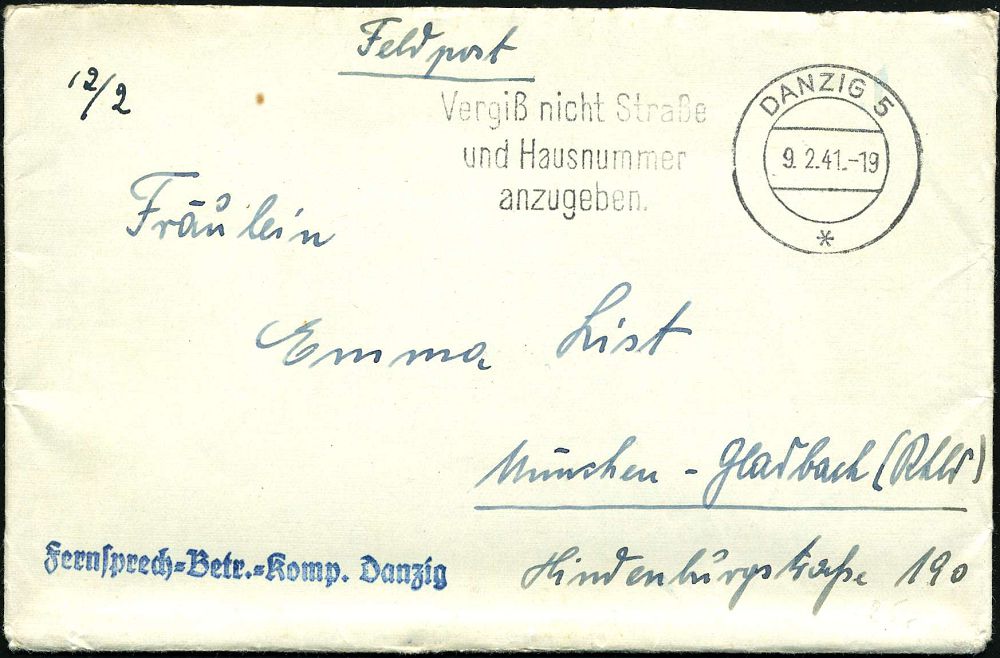 Feldpost
12/2
Vergiß nicht Straße
und Hausnummer
anzugeben.
DANZIG 5
9.2.41.-19
*
Fräulein
Emma List
München-Gladbach (Rhld)
Fernsprech=Betr.=Komp. Danzig
Hindenburgstraße 190